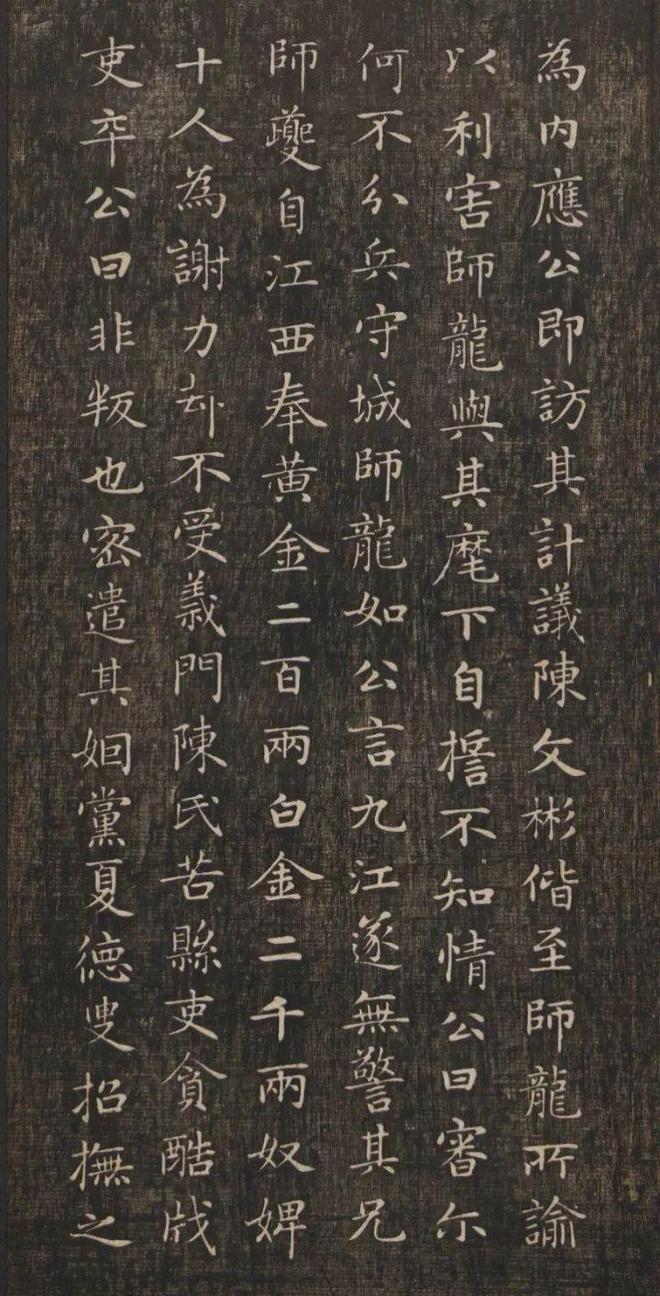 為内應公即訪其計議陳文彬偕至師龍所諭
以利害師龍與其麾下自撜不知情公曰審尓
何不分兵守城師龍如公言九江遂無警其兄
師夔自江西奉黄金二百兩白金二千兩奴婢
十人為謝力却不受義門陳氏苦縣吏貪酷戕
吏卒公曰非叛也宻遣其姻黨夏德叟招撫之